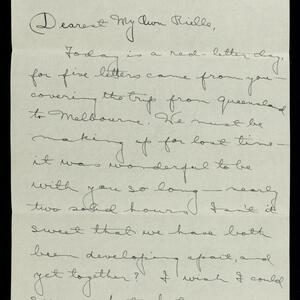 Dearest My Own Rielle,
Today is a red-letter day,
for five letters came from you —
covering the trip from Queensland
to Melbourne. He must be
making up for lost time —
it was wonderful to be
with you so long — nearly
two solid hours. Isn't it
sweet that we have both
been developing apart, and
yet together? I wish I could